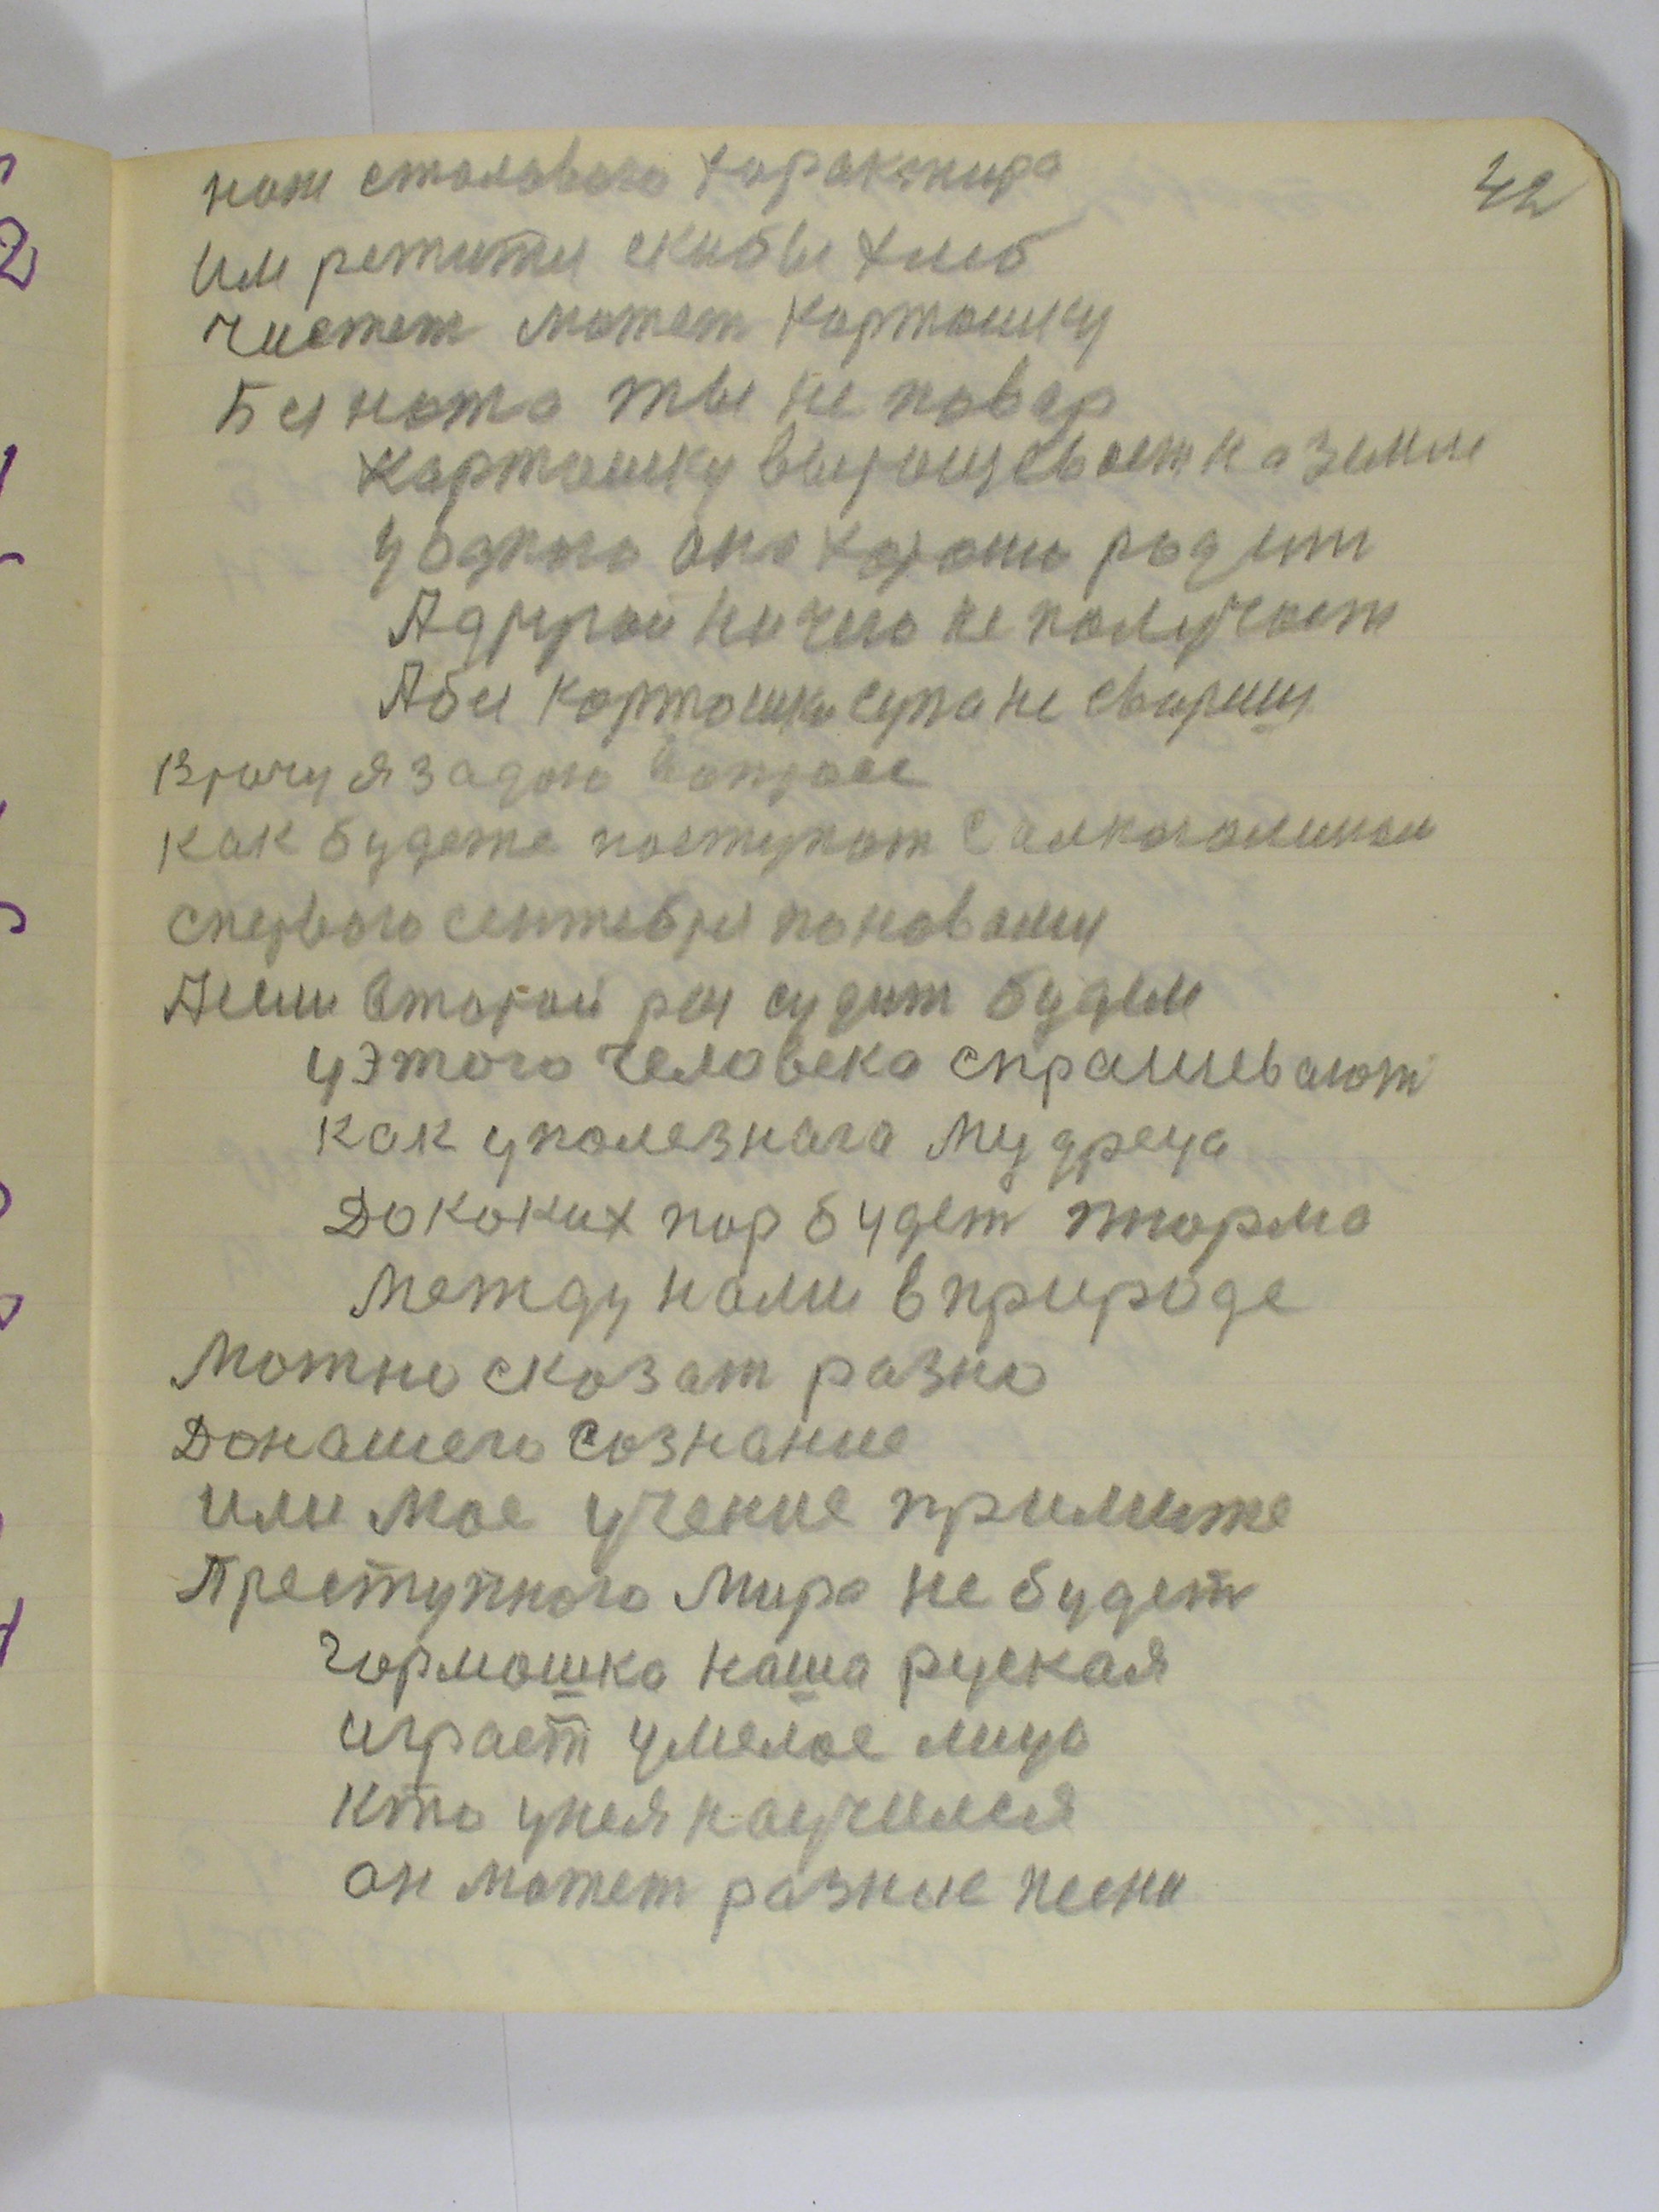 42
нож столового характира
Им режити скибы хлеб
чистет можем картошку
Без ножа ты не повар
Картошку выращевает на земле
У одного она хорошо родит
А другой ничего не получает
А без картошки супа не свариш
Врачу я задаю вопросс
Как будете поступат с алкоголиком
с первого сентебря по новому
А если второй раз судит будем
у этого человека спрашевают
Как у полезнага мудреца
До коких пор будет тюрма
Между нами в природе
Можно сказат разно
До нашего сознание
или мое учение примите
Преступного мира не будет
Гормошка наша руская
играет умелое лицо
Кто у нея научился
он может разные песни